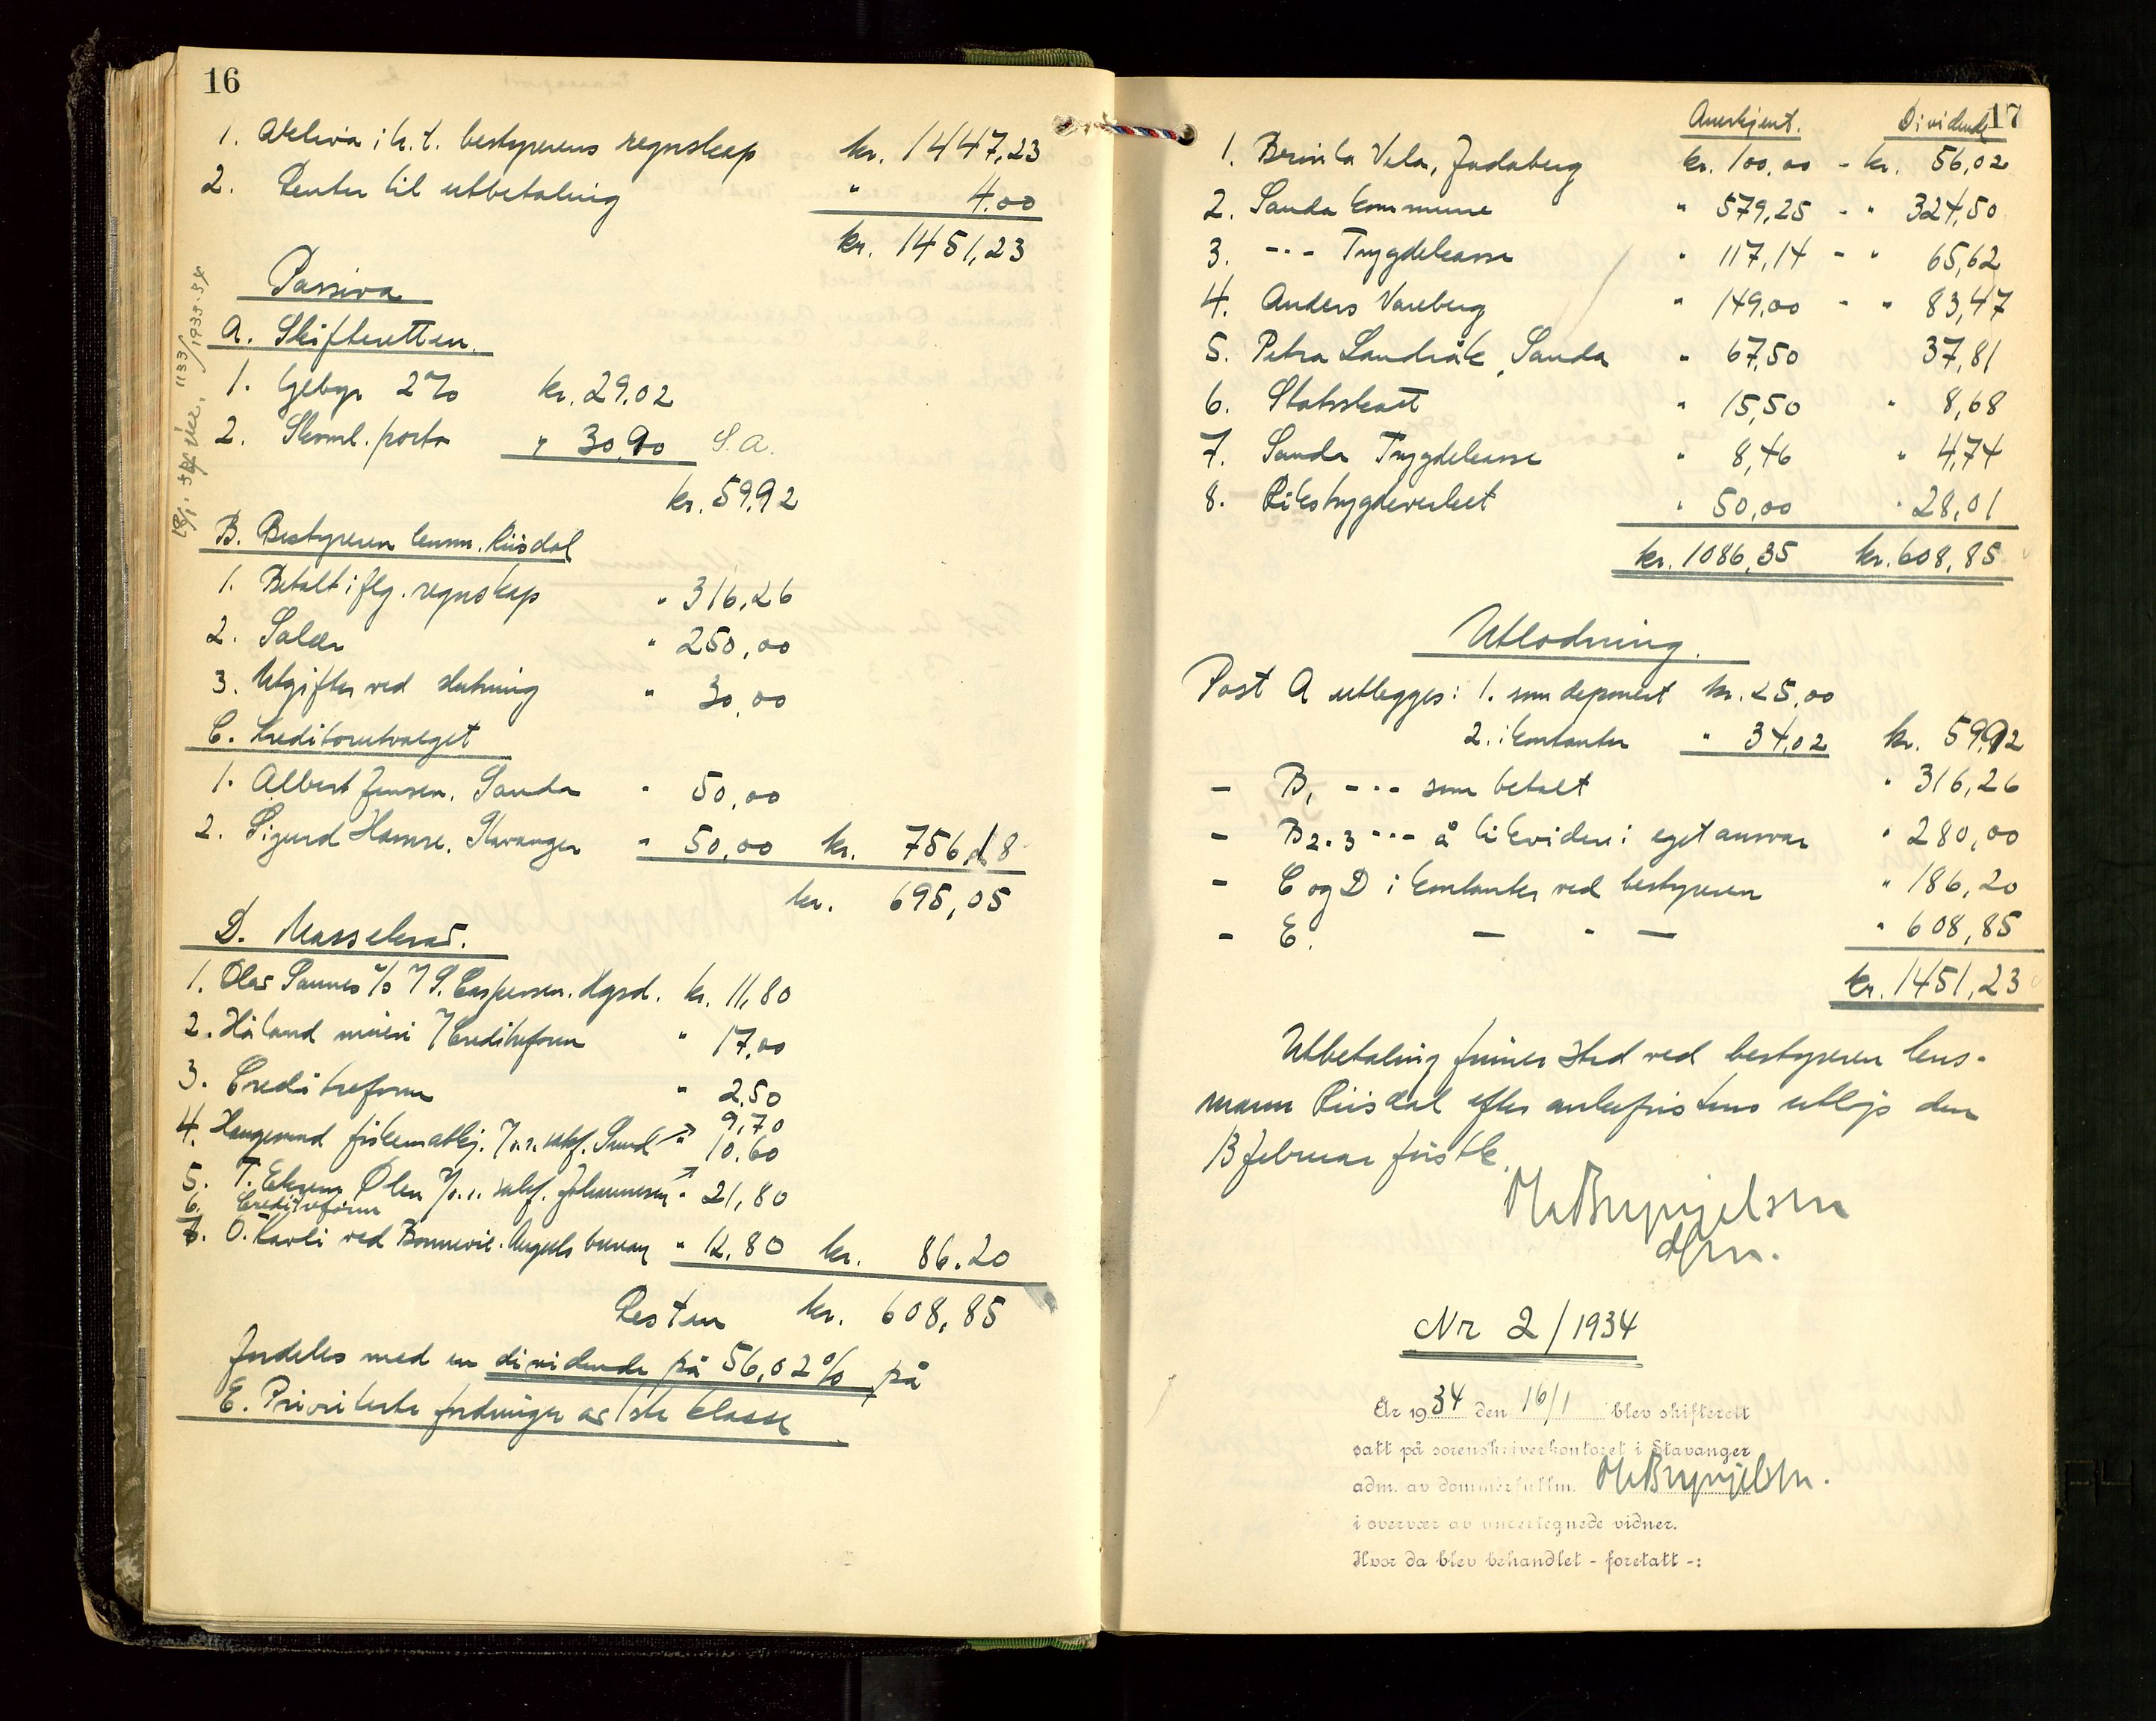 16
1. Aktiva i h.t. bestyrerens regnskap kr. 1447,23
2. Renter til utbetaling " 4.00
kr. 1451,23
Passiva
A. Skifteretten.
1. Gebyr 2% kr. 29.02
2. Skoml. porto " 30,90 S.A.
kr. 59.92
B. Bestyreren lensm. Riisdal
1. Betalt iflg. regnskap " 316,26
2. Salær " 250,00
3. Utgifter ved slutning " 30,00
C. Kreditorutvalget
1. Albert Jensen, Sauda " 50,00
2. Sigurd Hamre, Stavanger " 50,00 kr. 756,18
kr. 695,05
D. Massekrav.
1. Olav Sunnes % S. Caspersen. Hgsd. kr. 11,80
2. Håland mieri / Creditreform " 17,00
3. Creditreform " 2.50
4. Haugesund fiskematkj. / o.r.sakf. Sund " 9,70
10.60
5. T. Ekreng Ølen / o.r. sakf. Johannesen " 21,80
6. Creditreform
7. O. Kavli ved Bonnevie. Angells bureau " 12.80 kr. 86.20
Resten kr. 608,85
fordeles med en dividende på 56,02% på
E. Privilerte fordringer av 1ste klasse
18/1. 34 1133/1933-34
17
Anerkjent. Dividende
1. Brinla Vela, Jadaberg kr. 100,00 - kr. 56,02
2. Sauda kommune " 579,25 - " 324,50
3. -"- Trygdekasse " 117,14 - " 65,62
4. Anders Vareberg " 149,00 - " 83,47
5. Petra Landråk, Sauda " 67,50 37,81
6. Statsskatt " 15,50 " 8,68
7. Sauda Trygdekasse " 8,46 " 4,74
8. Rikstrygdeverket " 50,00 " 28,01
kr. 1086,35 kr. 608,85
Utlodning.
Post A utlegges: 1. som deponert kr. 25,00
2. i kontanter " 34,02 kr. 59,92
- B, -"- som betalt " 316,26
- B2-3 -"- å likvidere i eget ansvar " 280,00
- C og D i kontanter ved bestyreren " 186,20
- E. — " — " 608,85
kr. 1451,23
Utbetaling finner sted ved bestyreren lens-
mann Riisdal efter ankefristens utløp den
13 februar førstk.
O Brynjelsen
dfm.
Nr 2/1934
År 1934 den 16/1 blev skifterett
satt på sorenskriverkontoret i Stavanger
adm. av dommerfullm. O Brynjelsen.
i overvær av undertegnede vidner.
Hvor da blev behandlet - foretatt -: